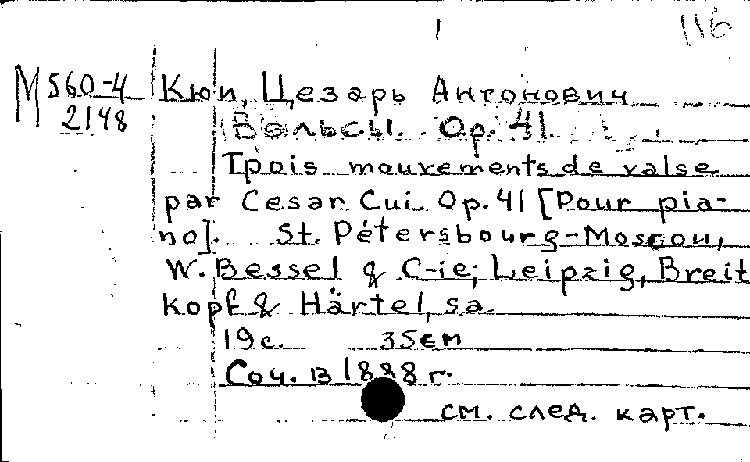 116
М 560-4 Кюи, Цезарь Антонович
2148 Вальсы. Op. 41.
Трois mouvements de valse
par Cesar Cui. Op. 41 [Pour pia-
no]. St. Pétersbourg-Moscou,
W. Bessel & C-ie; Leipzig, Breit
kopf & Härtel, s.a.
19 с. 35 см
Соч. в 1888 г.
см. след. карт.